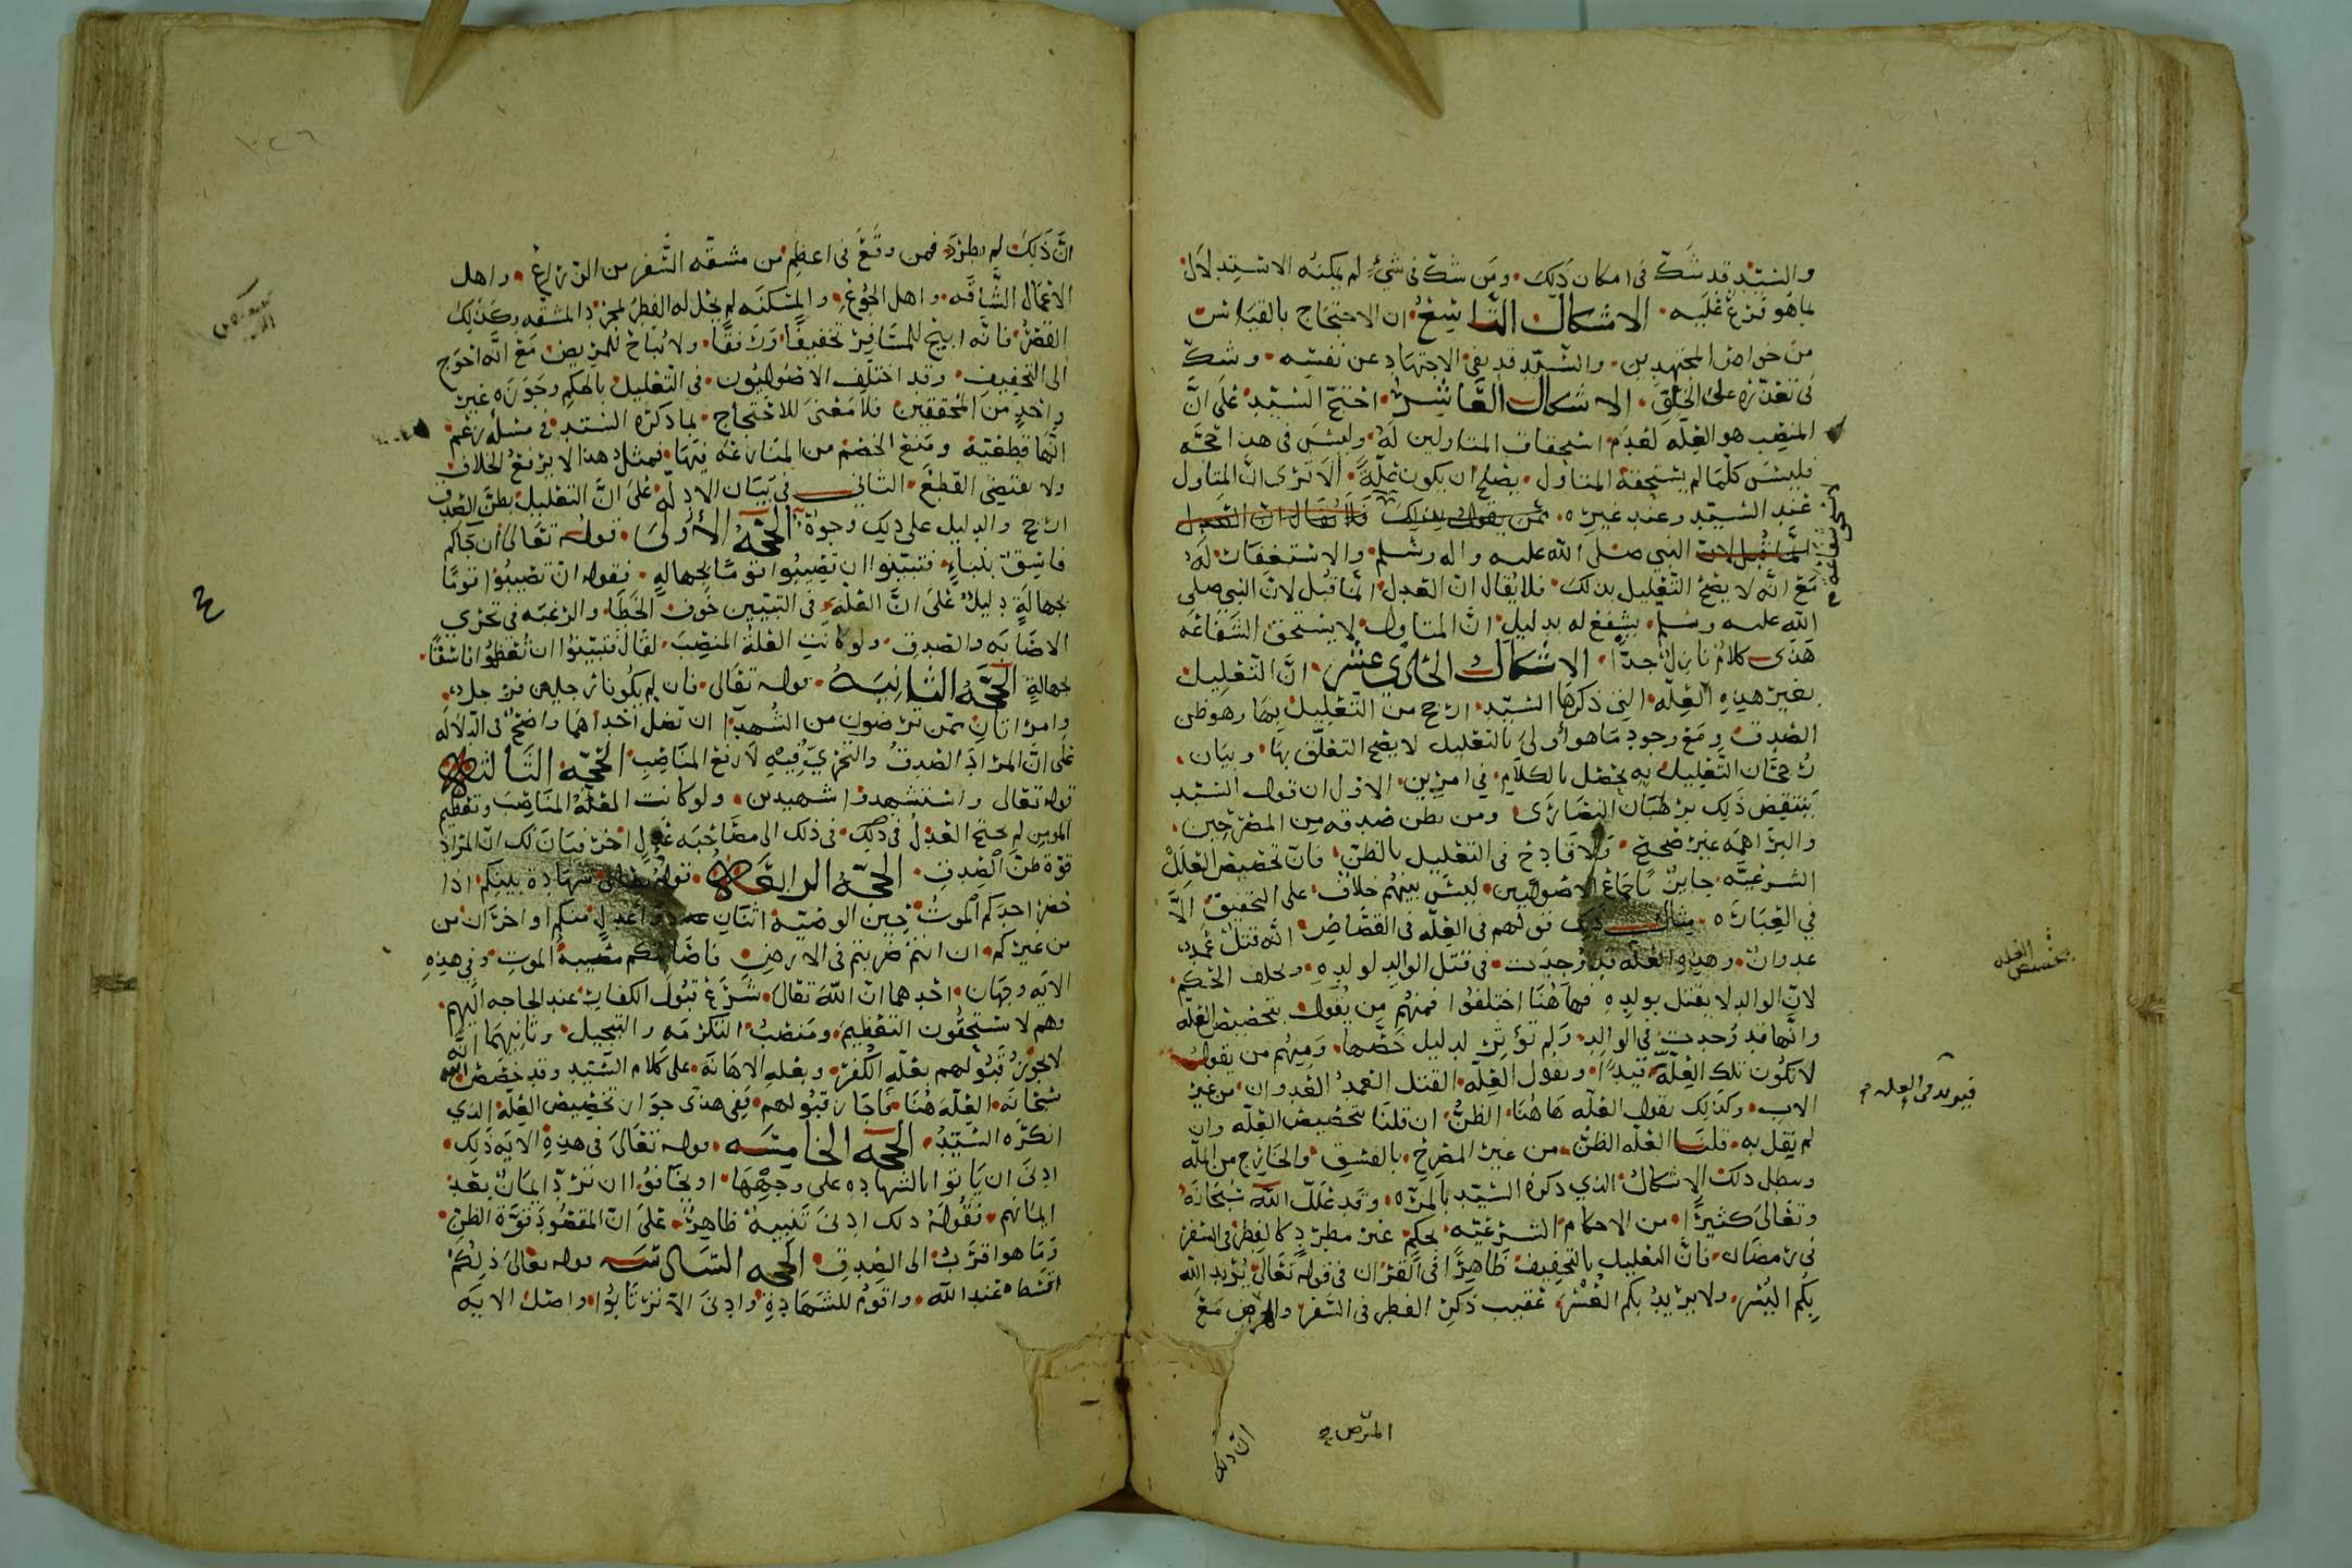 والسيد قد شك في امكان ذلك ومن شك في شيء لم يمكنه الاستدلال
بما هو فرع عليه الاشكال التاسع ان الاحتجاج بالقياس
من خواص المجتهدين والسيد قد نفى الاجتهاد عن نفسه وشك
في تعذره على الخلق الاشكال العاشر احتج السيد على ان
المنصب هو العلة لعدم استحقاق المتاولين له وليس في هذا حجة
فليس كلما لم يستحقه المتاول يصلح ان يكون علة الا ترى ان المتاول
عند السيد وعند غيره
النبي صلى الله عليه واله وسلم والاستغفار له
مع انه لا يصح التعليل بذلك فلا يقال ان العدل انما قبل لان النبي صلى
الله عليه وسلم يشفع له بدليل ان المتاول لا يستحق الشفاعة
هذى كلام نازل جدا الاشكال الحادي عشر ان التعليل
بغير هذه العلة التي ذكرها السيد ارجح من التعليل بها وهو ظن
الصدق ومع وجود ما هو أولى بالتعليل لا يصح التعلق بها وبيان
رجحان التعليل به يحصل بالكلام في امرين الاول ان قول السيد
ينتقض ذلك برهبان النصارى ومن يظن صدقه من المصرحين
والبراهمة غير صحيح ولا قادح في التعليل بالظن فان تخصيص العلل
الشرعية جايز باجماع الاصوليين ليس بينهم خلاف على التحقيق الا
في العبارة مثال ذلك قولهم في العلة في القصاص انه قتل عمد
عدوان وهذه العلة قد وجدت في قتل الوالد لولده وتخلف الحكم
لان الوالد لا يقتل بولده فهاهنا اختلفوا فمنهم من يقول بتخصيص العلة
وانها قد وجدت في الوالد ولم تؤثر لدليل خصها ومنهم من يقول
لا تكون تلك العلة ونقول العلة القتل العمد العدوان من غير
الاب وكذلك نقول العلة هاهنا الظن ان قلنا بتخصيص العلة وان
لم يقل به قلنا العلة الظن من غير المصرح بالفسق والخارج من الملة
وبطل ذلك الاشكال الذي ذكره السيد بالمرة وقد علل الله سبحانه
وتعالى كثيرا من الاحكام الشرعية بحكم غير مطرد كالفطر في السفر
في رمضان فان التعليل بالتخفيف ظاهرا في القران في قوله تعالى يريد الله
بكم اليسر ولا يريد بكم العسر عقيب ذكر الفطر في السفر والمرض مع
تخصيص العله
المرض
ان ذلك
ان ذلك لم يطرد فمن وقع في اعظم من مشقة السفر من الزراع واهل
الاعمال الشاقه واهل الجوع والمسكنه لم يحل له الفطر لمجرد المشقه وكذلك
القصر فانه ابيح للمسافر تخفيفا ورفقا ولا يباح للمريض مع انه احوج
الى التخفيف وقد اختلف الاصوليون في التعليل بالحكم وجوزه غير
واحد من المحققين فلا معنى للاحتجاج بما ذكره السيد في مسئله زعم
انها قطعية ومنع الخصم من المنازعة فيها فمثل هذا لا يرفع الخلاف
ولا يقتضي القطع الثاني في بيان الادله على ان التعليل بظن الصدق
ارجح والدليل على ذلك وجوه الحجة الأولى قوله تعالى ان جاكم
فاسق بنباء فتبينوا ان تصيبوا قوما بجهالة فقوله ان تصيبوا قوما
بجهالة دليل على ان العلة في التبيين خوف الخطا والرغبه في تحري
الاصابه والصدق ولو كانت العلة المنصب لقال فتبينوا ان تعظموا فاسقا
بجهالة الحجة الثانية قوله تعالى فان لم يكونا رجلين فرجل
وامراتان ممن ترضون من الشهدا ان تضل احداهما واضح في الدلاله
على ان المراد الصدق والتحري فيه لا رفع المناصب الحجة الثالثة
قوله تعالى واستشهدوا شهيدين ولو كانت العلة المناصب وتعظيم
المومن لم يحتج العدل في ذلك الى مصاحبه عدل اخر فبان لك ان المراد
قوة ظن الصدق الحجة الرابعة قوله تعالى شهادة بينكم اذا
حضر احدكم الموت حين الوصية اثنان ذوا عدل منكم او اخران من
من غيركم ان انتم ضربتم في الارض فاصابتكم مصيبة الموت وفي هذه
الايه وجهان احدهما ان الله تعالى شرع قبول الكفار عند الحاجه اليهم
وهم لا يستحقون التعظيم ومنصب التكرمه والتبجيل وثانيهما انه
لا يجوز قبولهم بعلة الكفر وبعلة الاهانة على كلام السيد وقد خصص الله
سبحانه العلة هنا فاجاز قبولهم ففي هذى جواز تخصيص العلة الذي
انكره السيد الحجه الخامسه قوله تعالى في هذه الايه ذلك
ادنى ان ياتوا بالشهاده على وجهها او يخافوا ان ترد ايمان بعد
ايمانهم فقوله ذلك ادنى تنبيه ظاهر على ان المقصود قوة الظن
وما هو اقرب الى الصدق الحجه السادسه قوله تعالى ذلكم
اقسط عند الله واقوم للشهادة وادنى الا ترتابوا واصل الايه